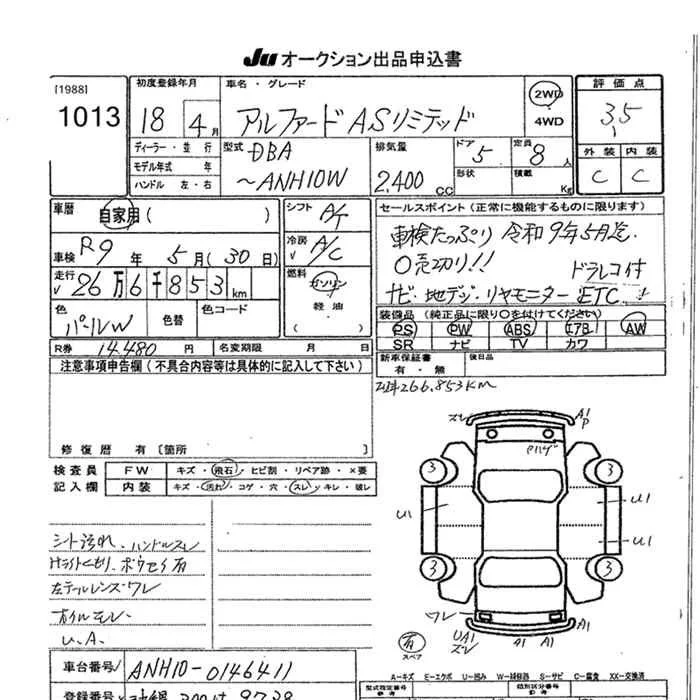 JU オークション出品申込書
[1988]
1013
初度登録年月
18 4月
車名・グレード
アルファードASリミテッド
2WD
4WD
評価点
3.5
外装 内装
C C
ディーラー・並行
モデル年式 年
ハンドル 左・右
型式
DBA
~ANH10W
排気量
2,400 CC
ドア
5
定員
8人
形状
積載
Kg
車歴
自家用( )
車検 R9年 5月(30日)
走行
26万6千853km
色
パールW
色替
色コード
シフト
A/T
冷房
A/C
燃料
ガソリン
軽油
( )
セールスポイント(正常に機能するものに限ります)
車検たっぷり 令和9年5月迄
○売切り!!
ドラレコ付
ナビ・地デジ・リヤモニター ETC
装備品(純正品に限り○を付けてください)
PS PW ABS エアB AW
SR ナビ TV カワ
R券 14,480円
名変期限 月 日
新車保証書
有・無
後日品
注意事項申告欄(不具合内容等は具体的に記入して下さい)
266,853KM
修復歴 有[箇所 ]
検査員
記入欄
FW キズ・飛石・ヒビ割・リペア跡・×要
内装 キズ・汚れ・コゲ・穴・スレ・キレ・破レ
スレ
A1
P
Pハゲ
3 3
U1
U1
U1
3 3
ワレ
有
スペア
UA1
スレ
A1 A1
シート汚れ、ハンドルスレ
Hライトくもり、ボウセイ有
左テールレンズワレ
オイルモレ、
U.A.
A-キズ E-エクボ U-凹み W-補修跡 S-サビ C-腐食 XX-交換済
車台番号 ANH10-0146411
型式指定番号
類別区分番号
登録番号